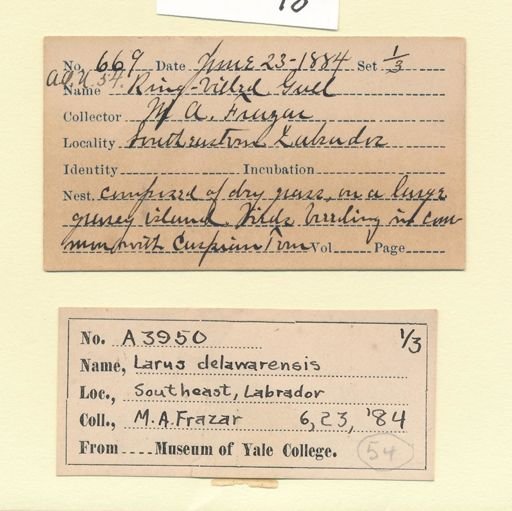 No. 669 Date June 23-1884 Set 1/3
A.O.U. 54.
Name Ring-billed Gull
Collector M. A. Frazar
Locality Southeastern Labrador
Identity Incubation
Nest. composed of dry grass, on a large
grassey island. Birds breeding in com-
mon with Caspian Tern Vol. Page
No. A3950 1/3
Name, Larus delawarensis
Loc., Southeast, Labrador
Coll., M.A. Frazar 6, 23, '84
From Museum of Yale College. 54